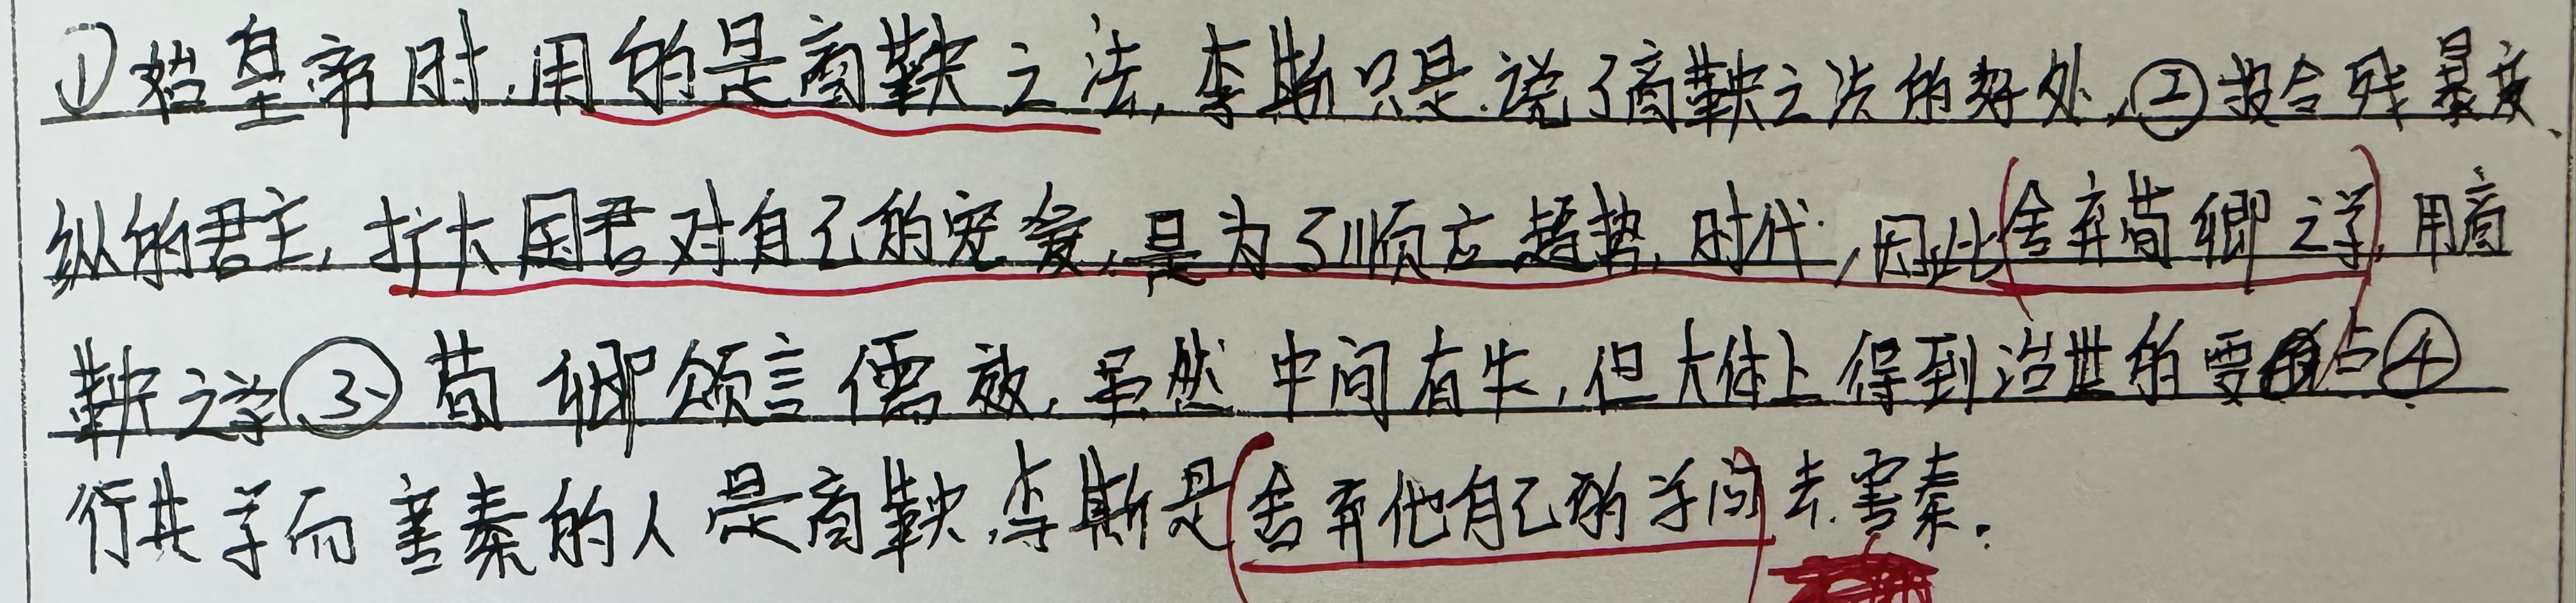 ①始皇帝时,用的是商鞅之法,李斯只是说了商鞅之法的好处,②投合残暴放
纵的君主,扩大国君对自己的宠爱,是为了顺应趋势,时代,因此舍弃荀卿之学,用商
鞅之学③荀卿颂言儒效,虽然中间有失,但大体上得到治世的要④
行其学而害秦的人是商鞅,李斯是舍弃他自己的学问去害秦。